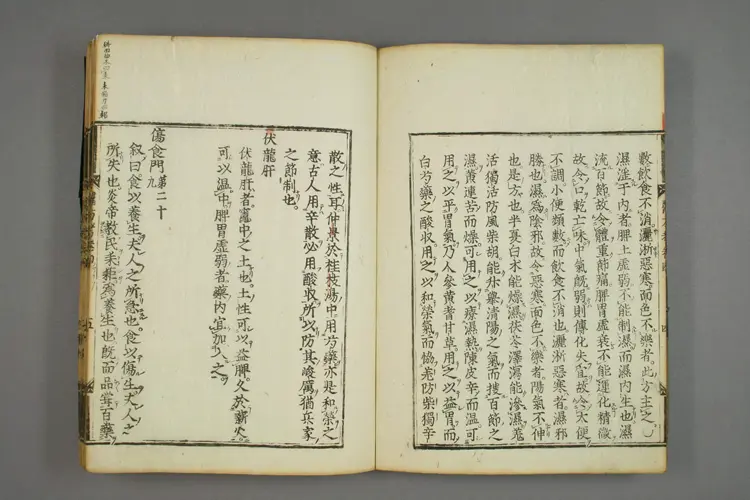 數飲食不消灑淅惡寒面色不樂者此方主之
濕淫于內者脾土虛弱不能制濕而濕內生也濕
流百節故令體重節痛脾胃虛衰不能運化精微
故令口乾亡味中氣旣弱則傳化失宜故令大便
不調小便頻數而飲食不消也灑淅惡寒者濕邪
勝也濕爲陰邪故令惡寒面色不樂者陽氣不伸
也是方也半夏白朮能燥濕茯苓澤瀉能滲濕羌
活獨活防風柴胡能升舉淸陽之氣而搜百節之
濕黃連苦而燥可用之以療濕熱陳皮辛而溫可
用之以平胃氣乃人參黃耆甘草用之以益胃而
白芍藥之酸收用之以和榮氣而協羌防柴獨辛
散之性耳仲景於桂枝湯中用芍藥亦是和榮之
意古人用辛散必用酸收所以防其峻厲猶兵家
之節制也
伏龍肝
伏龍肝者竈中之土也土性可以益脾久於薪火
可以溫中脾胃虛弱者藥內宜加入之
傷食門第二十
九
叙曰食以養生夫人之所急也食以傷生夫人之
所失也炎帝敎民耒耜爲養生也旣而品嘗百藥